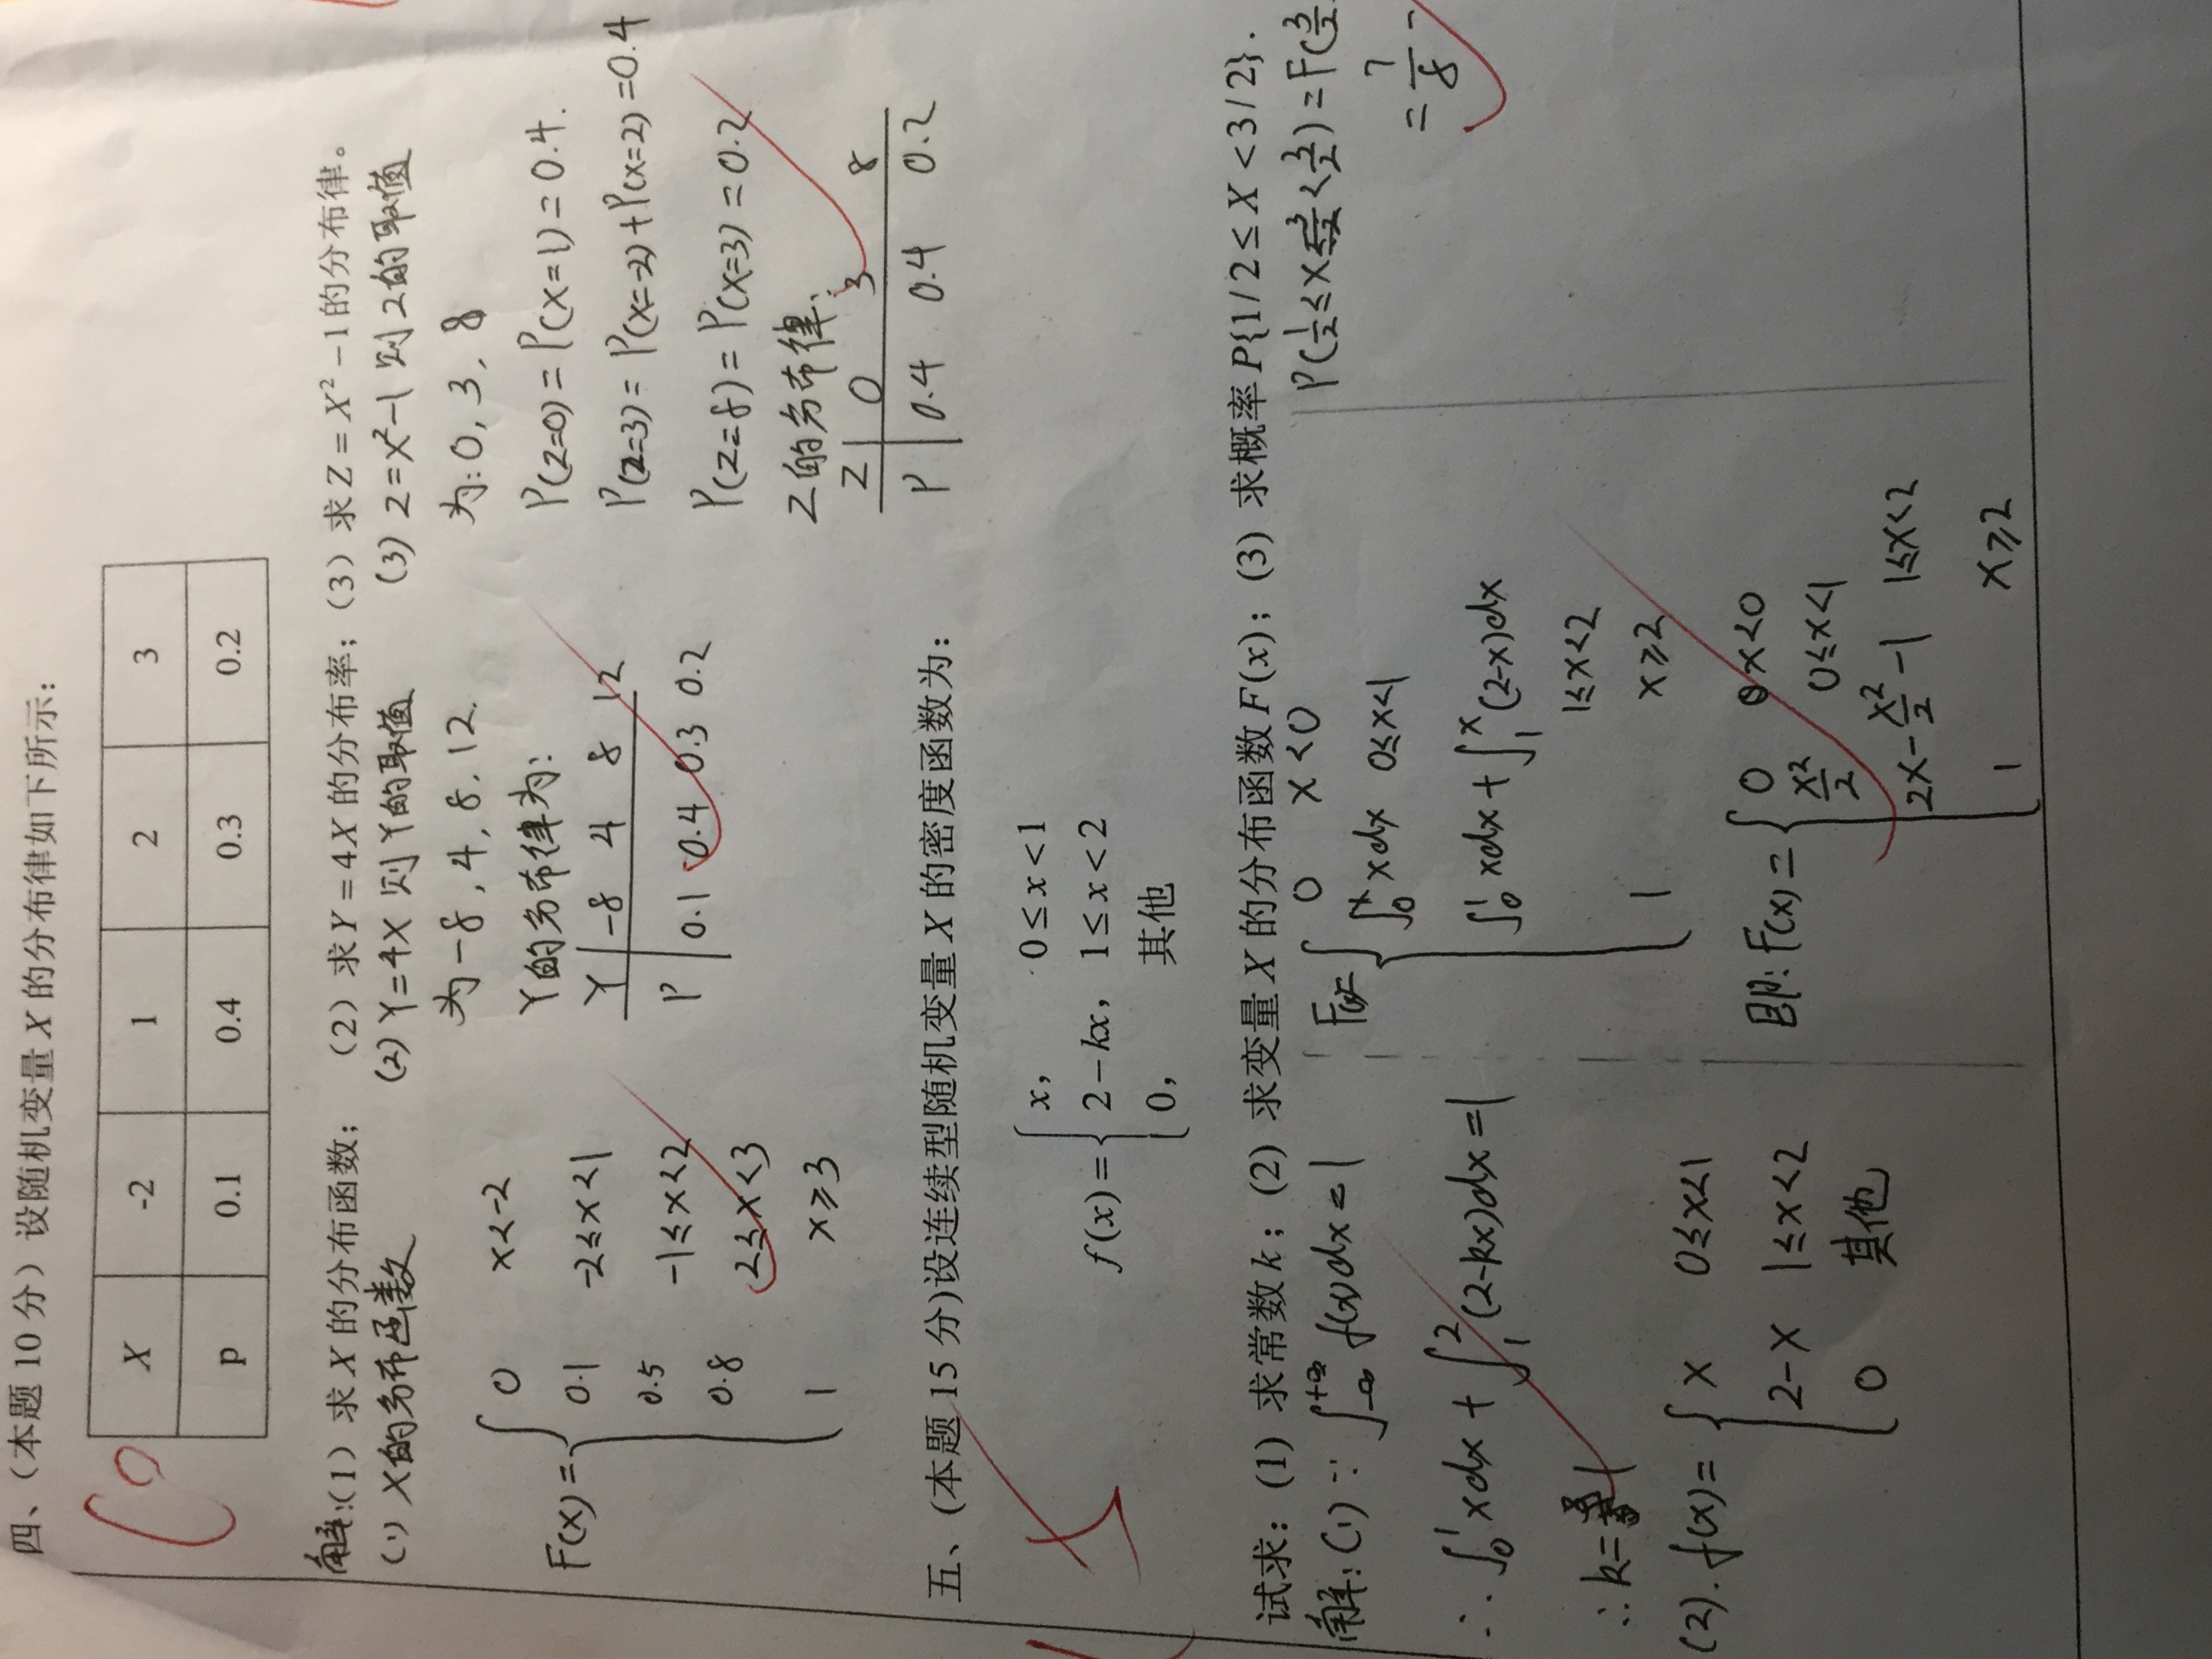 四、（本题 10 分）设随机变量 X 的分布律如下所示：
10
X -2 1 2 3
p 0.1 0.4 0.3 0.2
解：(1）求 X 的分布函数； （2）求 Y = 4X 的分布率；（3）求 Z = X² −1 的分布律。
(1) X的分布函数
F(x) = { 0 x<-2
0.1 -2≤x<1
0.5 -1≤x<2
0.8 2≤x<3
1 x≥3
(2) Y=4X 则Y的取值
为-8, 4, 8, 12.
Y的分布律为:
Y -8 4 8 12
P 0.1 0.4 0.3 0.2
(3) Z=X²-1 则Z的取值
为: 0, 3, 8
P(Z=0) = P(X=1) = 0.4.
P(Z=3) = P(X=-2)+P(X=2) =0.4
P(Z=8) = P(X=3) = 0.2
Z的分布律:
Z 0 3 8
P 0.4 0.4 0.2
五、(本题 15 分)设连续型随机变量 X 的密度函数为：
15
f(x) = { x， 0 ≤ x < 1
2 − kx， 1 ≤ x < 2
0， 其他
试求：(1) 求常数 k；(2) 求变量 X 的分布函数 F(x)；(3) 求概率 P{1/2 ≤ X < 3/2}.
解: (1) ∵ ∫_{-∞}^{+∞} f(x)dx = 1
∴ ∫_0^1 xdx + ∫_1^2 (2-kx)dx = 1
∴ k= 1
(2). f(x)= { x 0≤x<1
2-x 1≤x<2
0 其他
F(x)= { 0 x<0
∫_0^x xdx 0≤x<1
∫_0^1 xdx + ∫_1^x (2-x)dx
1≤x<2
1 x≥2
即: F(x) = { 0 x<0
x²/2 0≤x<1
2x - x²/2 - 1 1≤x<2
1 x≥2
P(1/2 ≤X < 3/2) = F(3/2
= 7/8 -